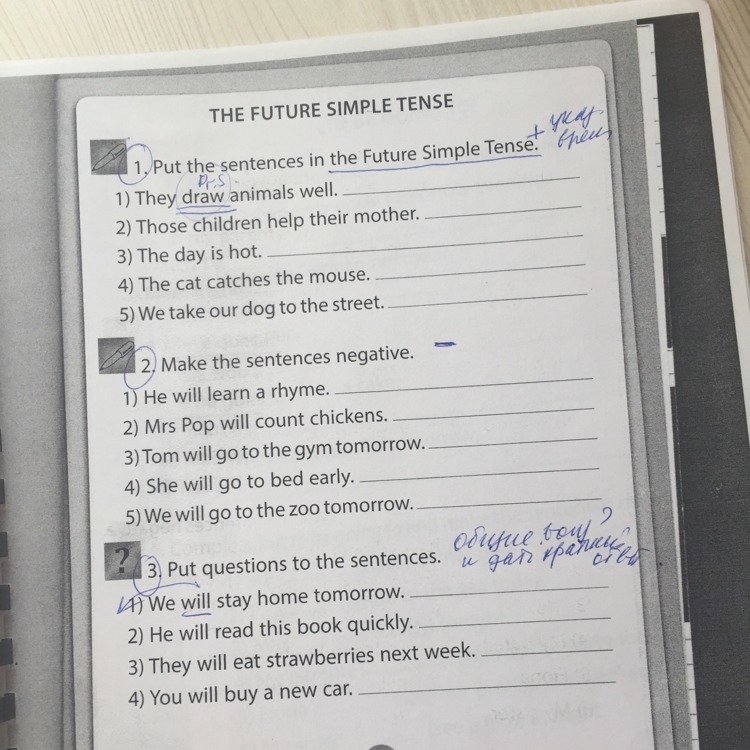 THE FUTURE SIMPLE TENSE
+ указ.
1. Put the sentences in the Future Simple Tense.
Pr.S.
1) They draw animals well.
2) Those children help their mother.
3) The day is hot.
4) The cat catches the mouse.
5) We take our dog to the street.
2. Make the sentences negative. –
1) He will learn a rhyme.
2) Mrs Pop will count chickens.
3) Tom will go to the gym tomorrow.
4) She will go to bed early.
5) We will go to the zoo tomorrow.
общие вопр ?
и дать краткий
ответ
? 3. Put questions to the sentences.
1) We will stay home tomorrow.
2) He will read this book quickly.
3) They will eat strawberries next week.
4) You will buy a new car.